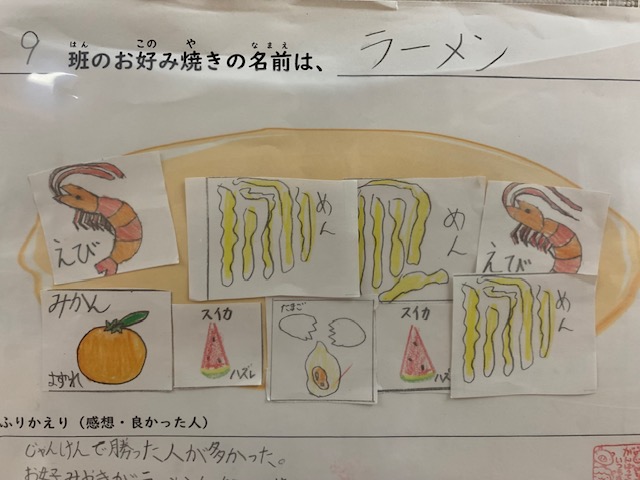 9 班のお好み焼きの名前は、 ラーメン
はん この や なまえ
えび
めん
めん
えび
みかん
はずれ
スイカ
ハズレ
たまご
スイカ
ハズレ
めん
ふりかえり（感想・良かった人）
じゃんけんで勝った人が多かった。
お好みやきが